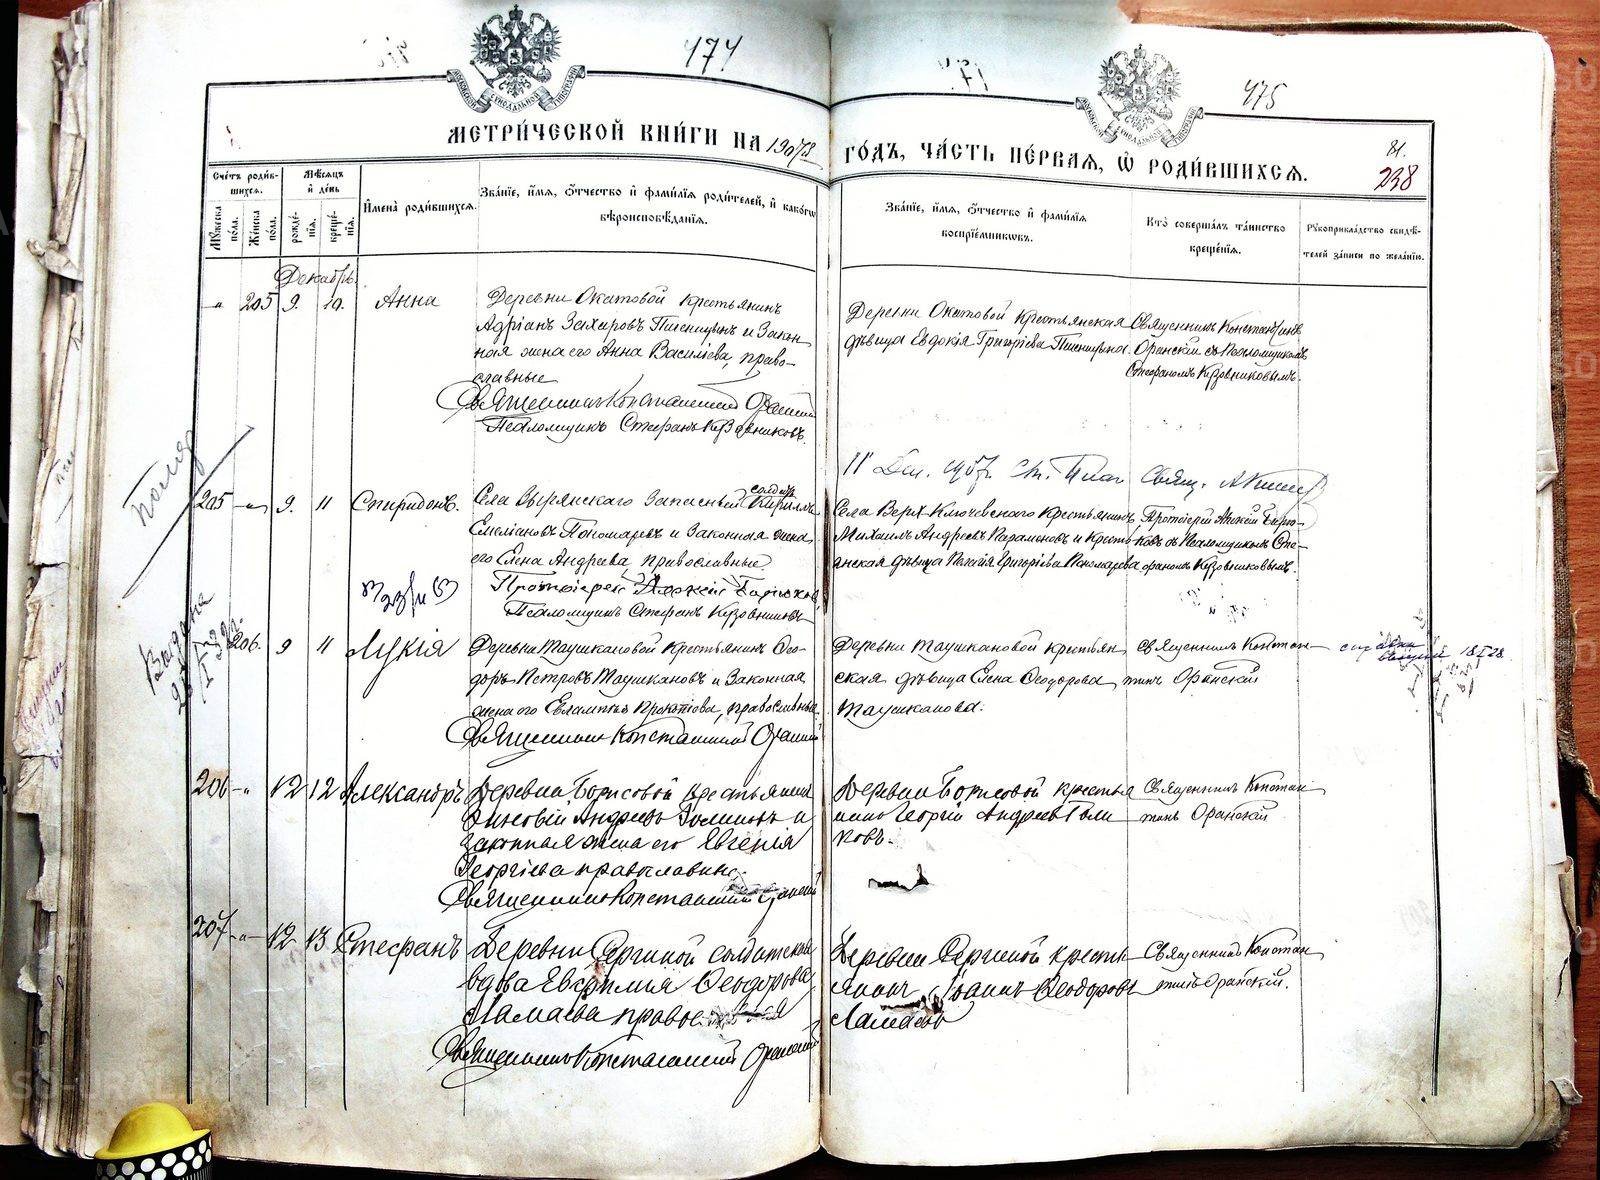 174
475
МОСКОВСКОЙ СѴНОДАЛЬНОЙ ТИПОГРАФІИ
МЕТРИ́ЧЕСКОЙ КНИ́ГИ НА 1907/8
ГО́ДЪ, ЧА́СТЬ ПЕ́РВАѦ, Ѡ҆ РОДИ́ВШИХСѦ.
81.
238
Сче́тъ роди́в-
шихсѧ.
Мѣ́сѧцъ
и҆ де́нь
Мꙋ́жеска
по́ла.
Же́нска
по́ла.
рожде́-
нїѧ.
креще́-
нїѧ.
И҆мена̀ роди́вшихсѧ.
Зва́нїе, и҆́мѧ, ѻ҆́тчество и҆ фами́лїѧ роди́телей, и҆ како́гѡ
вѣроисповѣ́данїѧ.
Зва́нїе, и҆́мѧ, ѻ҆́тчество и҆ фами́лїѧ
воспрїе́мникѡвъ.
Кто̀ соверша́лъ та́инство
креще́нїѧ.
Рꙋкоприкла́дство свидѣ́-
телей за́писи по жела́нїю.
Декабрь.
" 205 9. 10. Анна
Деревни Окатовой крестьянинъ
Адріанъ Захаровъ Пшеницынъ и Закон
ная жена его Анна Василіева, право-
славные
Священникъ Константинъ Оранскій
Псаломщикъ Стефанъ Кузовниковъ.
Деревни Окатовой крестьянская
дѣвица Евдокія Григоріева Пшеницына.
Священникъ Констан тинъ
Оранскій съ Псаломщикомъ
Стефаномъ Кузовниковымъ.
205 - " 9. 11 Спиридонъ.
Села Вырянскаго Запасный солдатъ Кириллъ
Емеліановъ Пономаревъ и Законная жена
его Елена Андреева, православные.
Протоіерей Алексій
Псаломщикъ Стефанъ Кузовниковъ
Села Верх-Ключевскаго крестьянинъ
Михаилъ Андреевъ Парамоновъ и кресть
янская дѣвица Пелагія Григоріева Пономарева
Протоіерей Алексій
ковъ съ Псаломщикомъ Сте-
фаномъ Кузовниковымъ.
206. 9 11 Лукія
Деревни Таушкановой крестьянинъ Ѳео-
доръ Петровъ Таушкановъ и Законная
жена его Евлампія Прокопіова, православные.
Священникъ Константинъ Оранскій
Деревни Таушкановой крестьян
ская дѣвица Елена Ѳеодорова
Таушканова.
Священникъ Констан-
тинъ Оранскій
206 - " 12 12 Александръ
Деревни Борисовой крестьянин
Андреевъ Голиковъ и
законная жена его Евгенія
Георгіева православные
Священникъ Константинъ Оранскій
Деревни Борисовой крестья
нинъ Георгій Андреевъ Голи
ковъ.
Священникъ Констан
тинъ Оранскій
207 - " - 12 13 Стефанъ
Деревни Сергиной солдатская
вдова Евфимья Ѳеодорова
Ламаева
Священникъ Константинъ Оранскій
Деревни Сергиной кресть
янинъ Іоаннъ Ѳеодоровъ
Ламаевъ
Священникъ Констан
тинъ Оранскій.